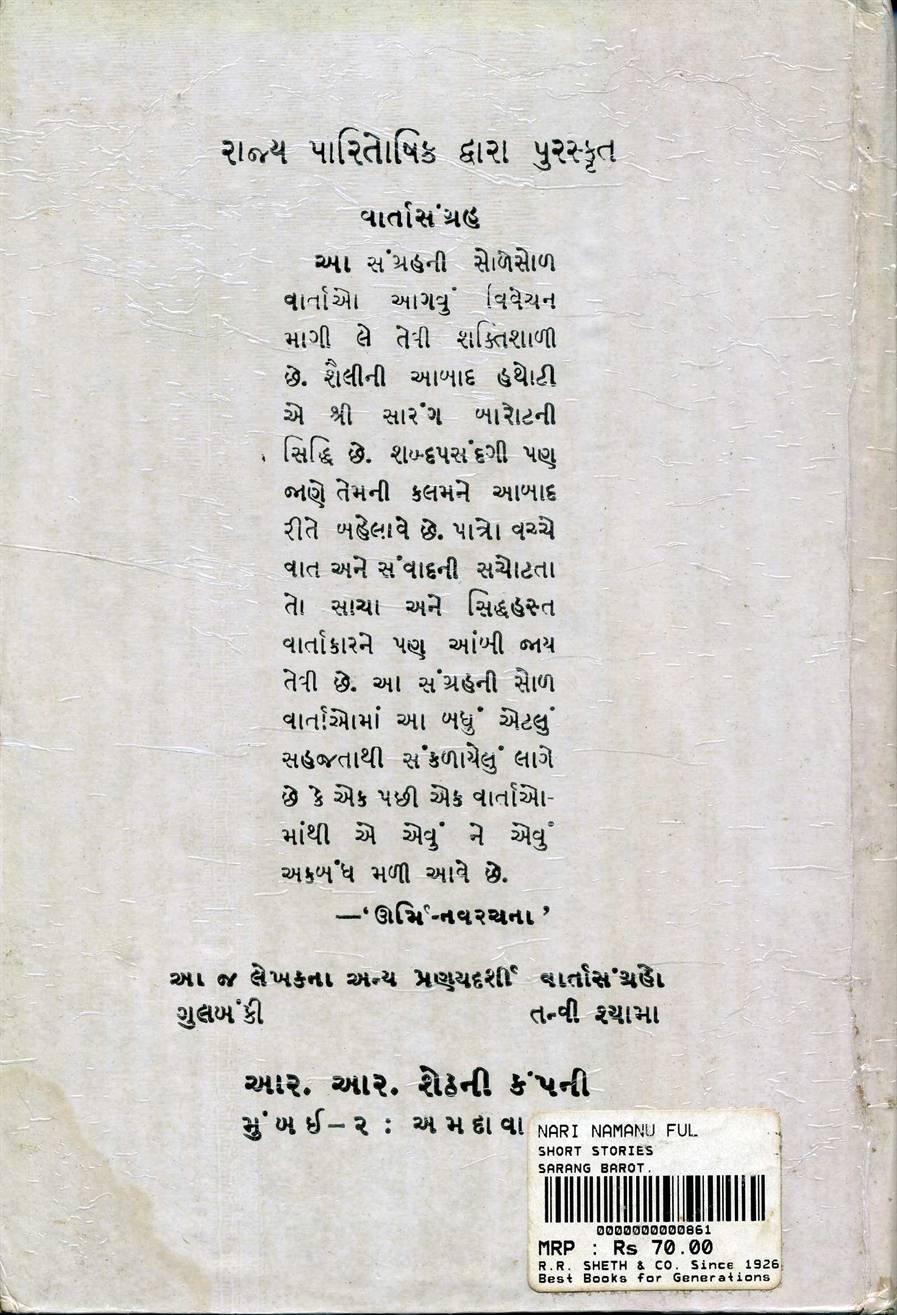 રાજ્ય પારિતોષિક દ્વારા પુરસ્કૃત
વાર્તાસંગ્રહ
આ સંગ્રહની સોળેસોળ
વાર્તાઓ આગવું વિવેચન
માગી લે તેવી શક્તિશાળી
છે. શૈલીની આબાદ હથોટી
એ શ્રી સારંગ બારોટની
સિદ્ધિ છે. શબ્દપસંદગી પણ
જાણે તેમની કલમને આબાદ
રીતે બહેલાવે છે. પાત્રો વચ્ચે
વાત અને સંવાદની સચોટતા
તો સાચા અને સિદ્ધહસ્ત
વાર્તાકારને પણ આંબી જાય
તેવી છે. આ સંગ્રહની સોળ
વાર્તાઓમાં આ બધું એટલું
સહજતાથી સંકળાયેલું લાગે
છે કે એક પછી એક વાર્તાઓ-
માંથી એ એવું ને એવું
અકબંધ મળી આવે છે.
—‘ઊર્મિ-નવરચના’
આ જ લેખકના અન્ય પ્રણયદર્શી વાર્તાસંગ્રહો
ગુલબંકી તન્વી શ્યામા
આર. આર. શેઠની કંપની
મુંબઈ–૨ : અમદાવા
NARI NAMANU FUL
SHORT STORIES
SARANG BAROT.
0000000000861
MRP : Rs 70.00
R.R. SHETH & CO. Since 1926
Best Books for Generations